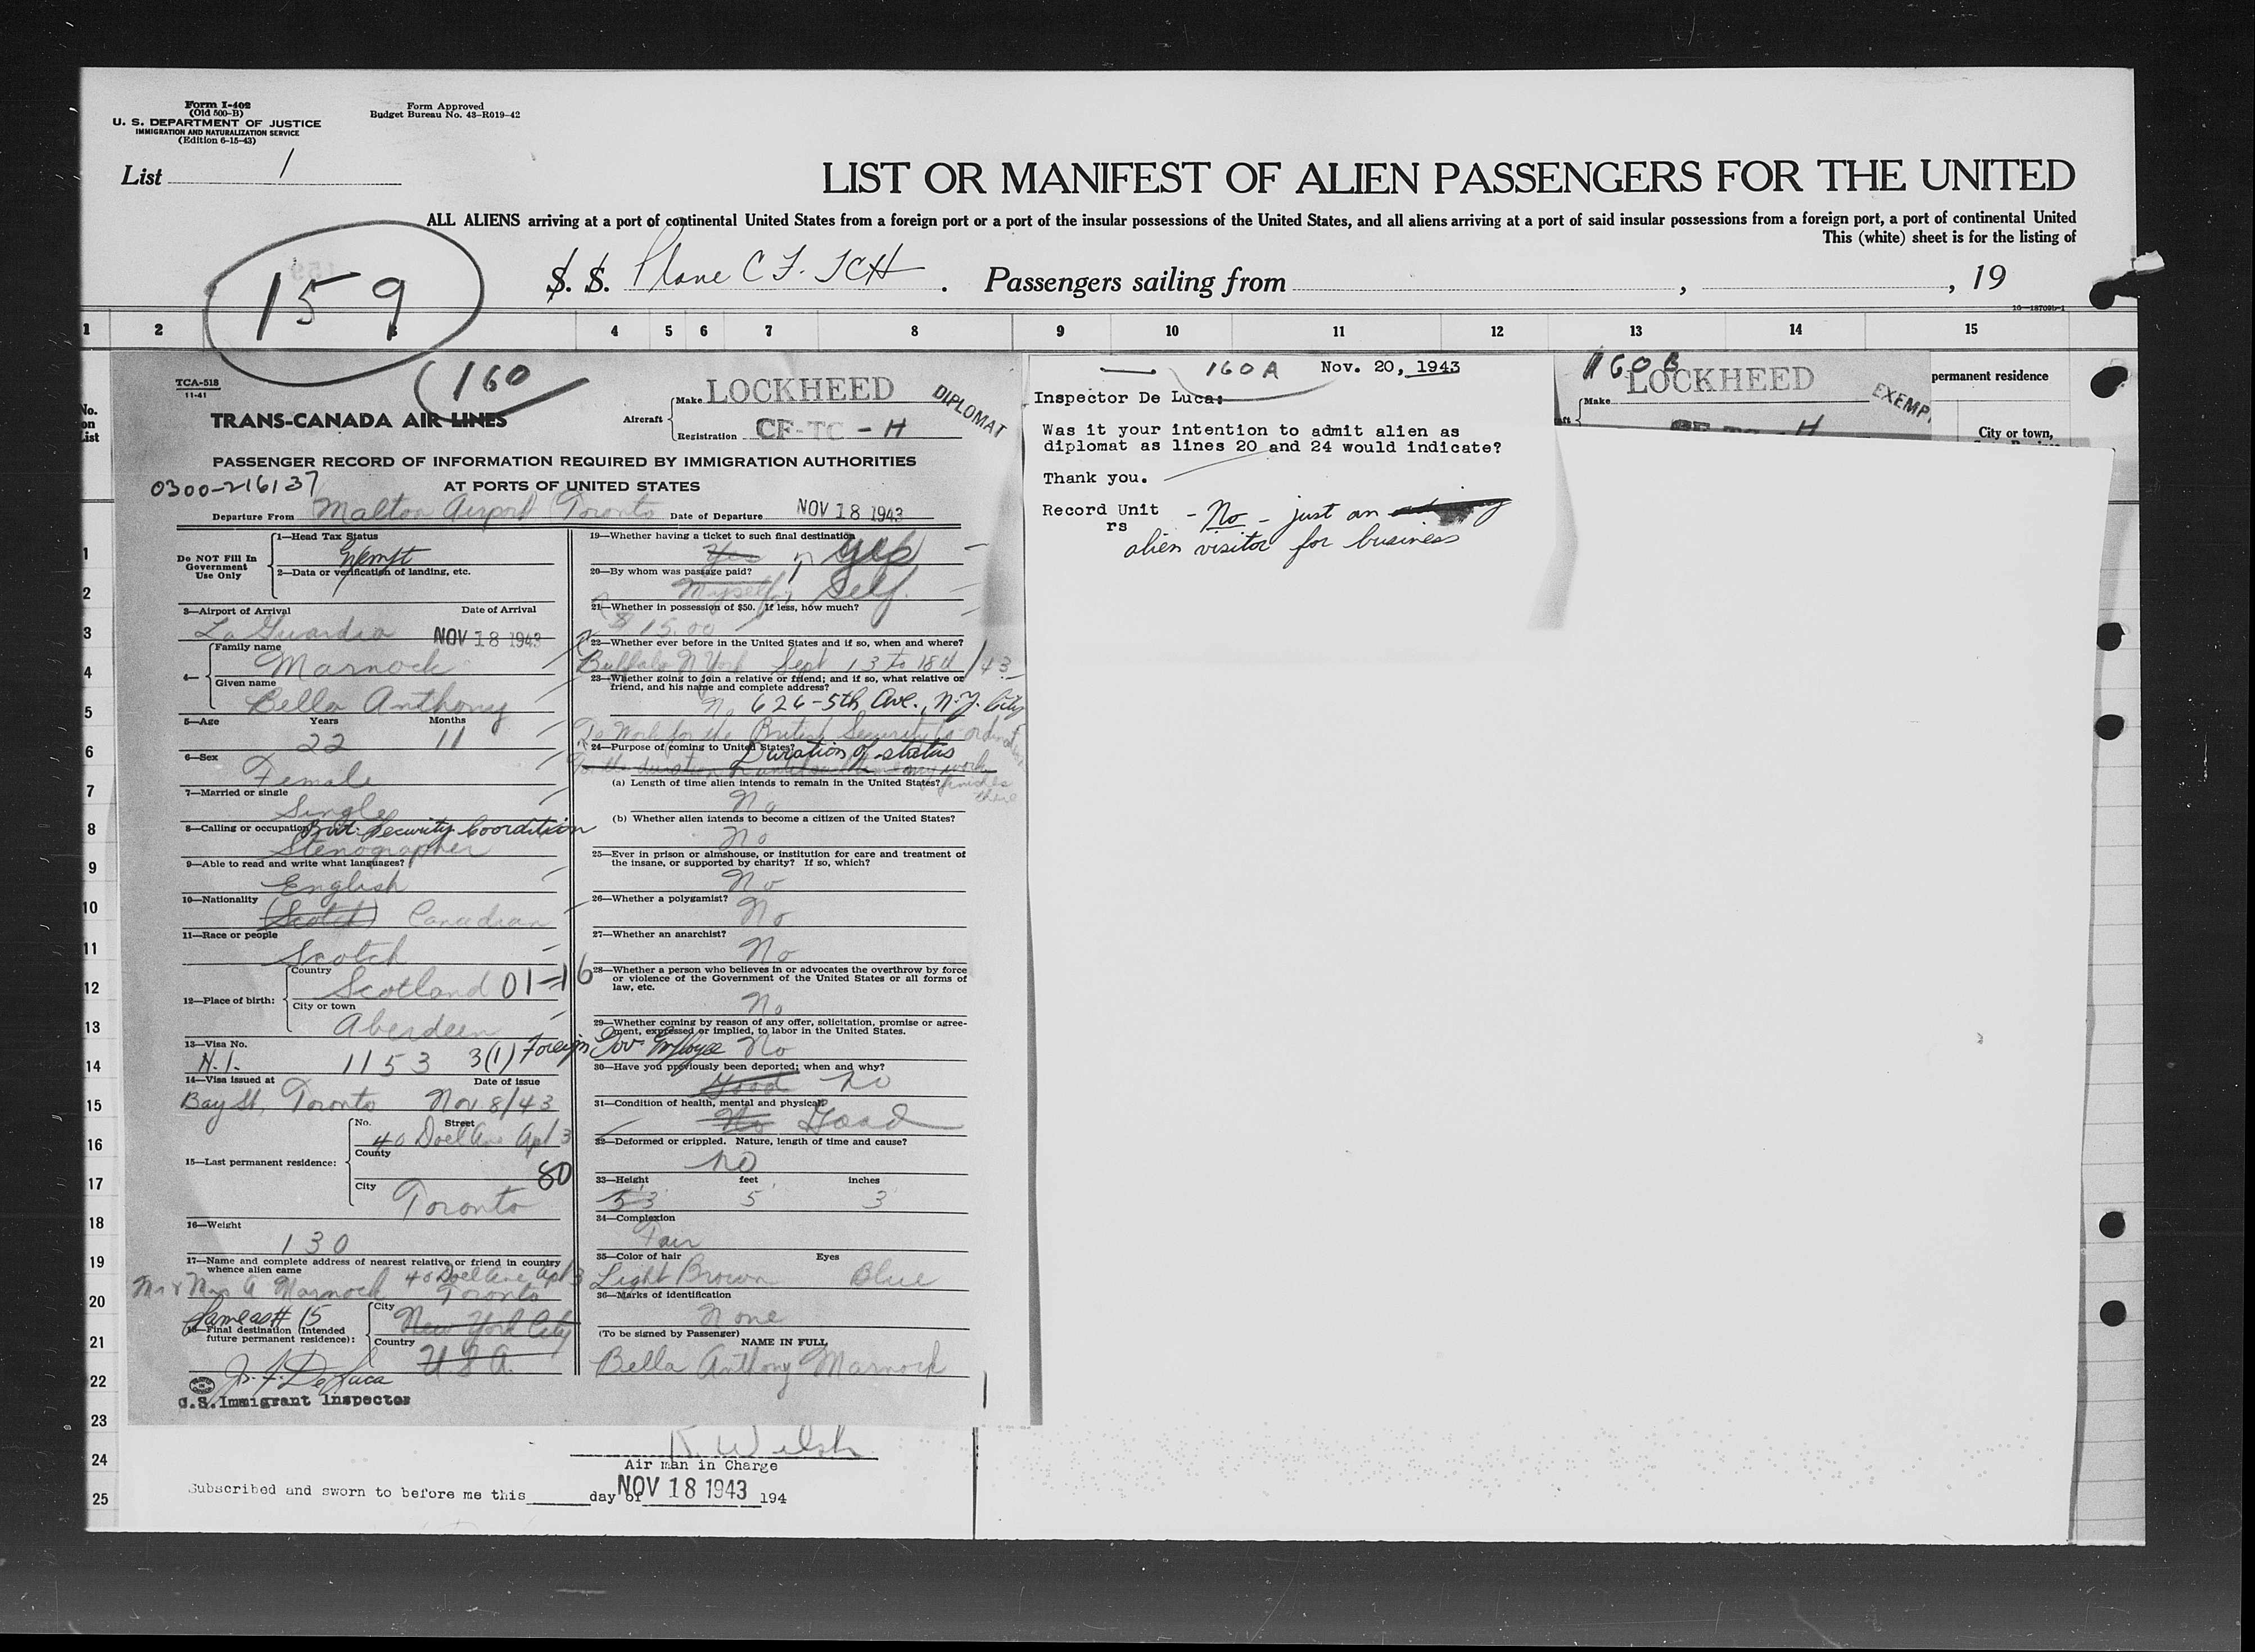 Form I-402
(Old 500-B)
U. S. DEPARTMENT OF JUSTICE
IMMIGRATION AND NATURALIZATION SERVICE
(Edition 6-15-43)
Form Approved
Budget Bureau No. 43-R019-42
List 1
LIST OR MANIFEST OF ALIEN PASSENGERS FOR THE UNITED
ALL ALIENS arriving at a port of continental United States from a foreign port or a port of the insular possessions of the United States, and all aliens arriving at a port of said insular possessions from a foreign port, a port of continental United
This (white) sheet is for the listing of
159
S. S. Plane CF. TCH. Passengers sailing from , , 19
1 2 3 4 5 6 7 8 9 10 11 12 13 14 15
160
TCA-518
11-41
TRANS-CANADA AIR LINES
Aircraft
Make LOCKHEED
Registration CF-TC-H
DIPLOMAT
PASSENGER RECORD OF INFORMATION REQUIRED BY IMMIGRATION AUTHORITIES
AT PORTS OF UNITED STATES
0300-216137
Departure From Malton Airport Toronto Date of Departure NOV 18 1943
Do NOT Fill In Government Use Only
1—Head Tax Status
Exempt
2—Data or verification of landing, etc.
3—Airport of Arrival Date of Arrival
La Guardia NOV 18 1943
4—
Family name
Marnock
Given name
Bella Anthony
5—Age Years Months
22 11
6—Sex
Female
7—Married or single
Single
8—Calling or occupation Brit. Security Coordition
Stenographer
9—Able to read and write what languages?
English
10—Nationality
(Scotch) Canadian
11—Race or people
Scotch
12—Place of birth:
Country
Scotland 01-16
City or town
Aberdeen
13—Visa No.
N.I. 1153 3(1) Foreign Gov. Employee
14—Visa issued at Date of issue
Bay St, Toronto Nov 8/43
15—Last permanent residence:
No. Street
40 Doel Ave Apt 3
County
80
City
Toronto
16—Weight
130
17—Name and complete address of nearest relative or friend in country
whence alien came
Mr & Mrs A Marnock 40 Doel Ave Apt 3
Toronto
Same as # 15
18—Final destination (Intended
future permanent residence):
City
New York City
Country
U.S.A.
J. F. De Luca
U.S. Immigrant Inspector
19—Whether having a ticket to such final destination
Yes Yes
20—By whom was passage paid?
Myself Self.
21—Whether in possession of $50. If less, how much?
$15.00
22—Whether ever before in the United States and if so, when and where?
Buffalo N York Sept 13 to 18th/43
23—Whether going to join a relative or friend; and if so, what relative or
friend, and his name and complete address?
No 626-5th Ave., N.Y. City
To Work for the British Security Co-ordination
24—Purpose of coming to United States?
Duration of status
work finishes there
(a) Length of time alien intends to remain in the United States?
No
(b) Whether alien intends to become a citizen of the United States?
No
25—Ever in prison or almshouse, or institution for care and treatment of
the insane, or supported by charity? If so, which?
No
26—Whether a polygamist?
No
27—Whether an anarchist?
No
28—Whether a person who believes in or advocates the overthrow by force
or violence of the Government of the United States or all forms of
law, etc.
No
29—Whether coming by reason of any offer, solicitation, promise or agree-
ment, expressed or implied, to labor in the United States.
No
30—Have you previously been deported; when and why?
Good No
31—Condition of health, mental and physical?
No Good
32—Deformed or crippled. Nature, length of time and cause?
No
33—Height feet inches
53 5 3
34—Complexion
Fair
35—Color of hair Eyes
Light Brown Blue
36—Marks of identification
None
(To be signed by Passenger) NAME IN FULL
Bella Anthony Marnock
Air man in Charge
Subscribed and sworn to before me this day of NOV 18 1943 194
160A Nov. 20, 1943
Inspector De Luca:
Was it your intention to admit alien as
diplomat as lines 20 and 24 would indicate?
Thank you.
Record Unit
rs
- No - just an
alien visitor for business
160B
LOCKHEED
Make
EXEMP
permanent residence
City or town,
No. on List
1
2
3
4
5
6
7
8
9
10
11
12
13
14
15
16
17
18
19
20
21
22
23
24
25